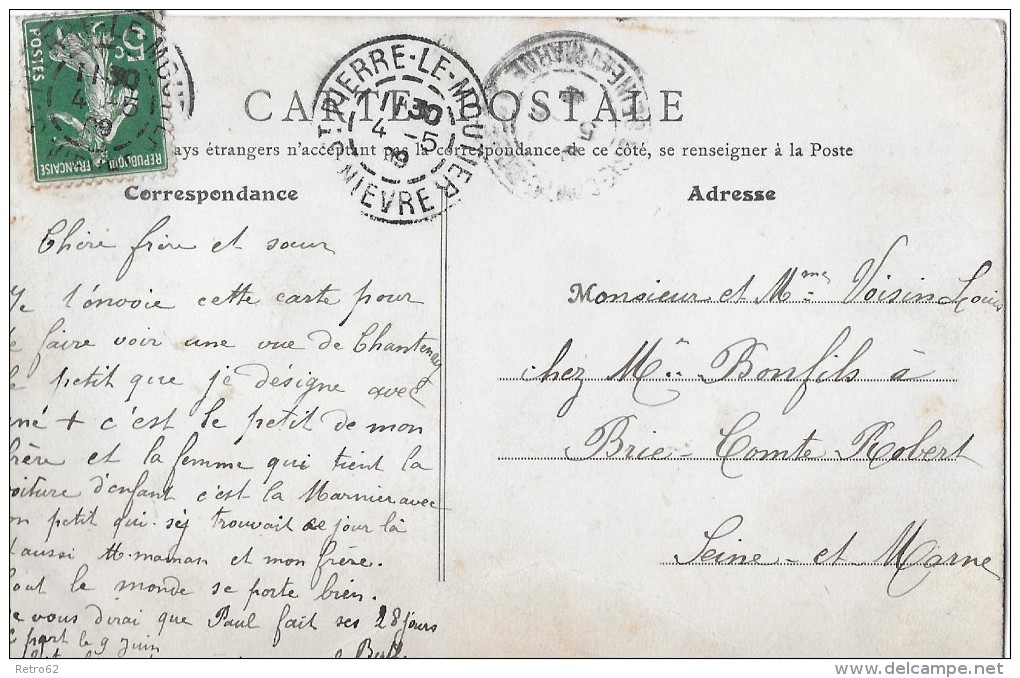 5c
POSTES
REPUBLIQUE FRANÇAISE
ST PIERRE-LE-MOUTIER
11 30
4 -5
09
NIEVRE
CARTE POSTALE
pays étrangers n'acceptent pas la correspondance de ce côté, se renseigner à la Poste
Correspondance
Chère frère et sœur
Je t'envoie cette carte pour
faire voir une vue de Chantenay
le petit que je désigne avec
+ c'est le petit de mon
frère et la femme qui tient la
voiture d'enfant c'est la Marnier avec
son petit qui s'y trouvait ce jour là
aussi M. maman et mon frère.
tout le monde se porte bien.
Je vous dirai que Paul fait ses 28 jours
part le 9 Juin
Adresse
Monsieur et Mme Voisin Louis
chez Mr Bonfils à
Brie-Comte Robert
Seine-et Marne
Retro62
delcampe.net